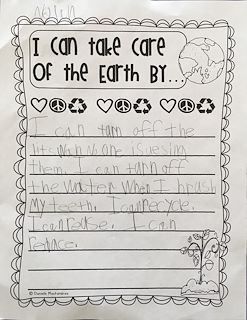 I can take care
of the Earth by...
I can turn off the
lits when no one is uesing
them. I can turn off
the watter when I brush
My teeth. I can recycle.
I can reuse. I can
reduce.